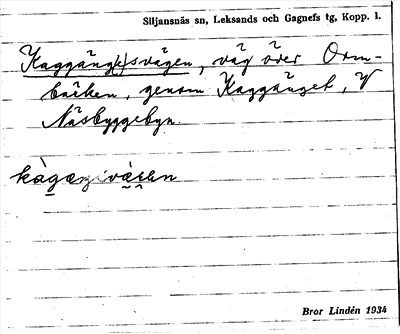 Siljansnäs sn, Leksands och Gagnefs tg, Kopp. l.
Kaggäng(s)vägen, väg över Orm-
bäcken, genom Kaggänget, V
Näsbyggebyn.
Bror Lindén 1934